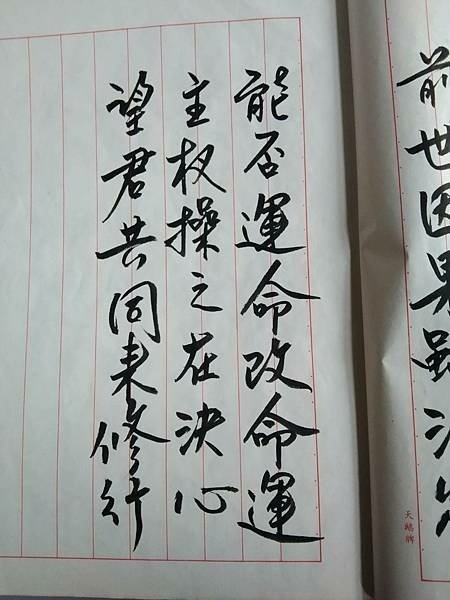 前世因果雖
天鵝牌
能否運命改命運
主权操之在決心
望君共同来修行